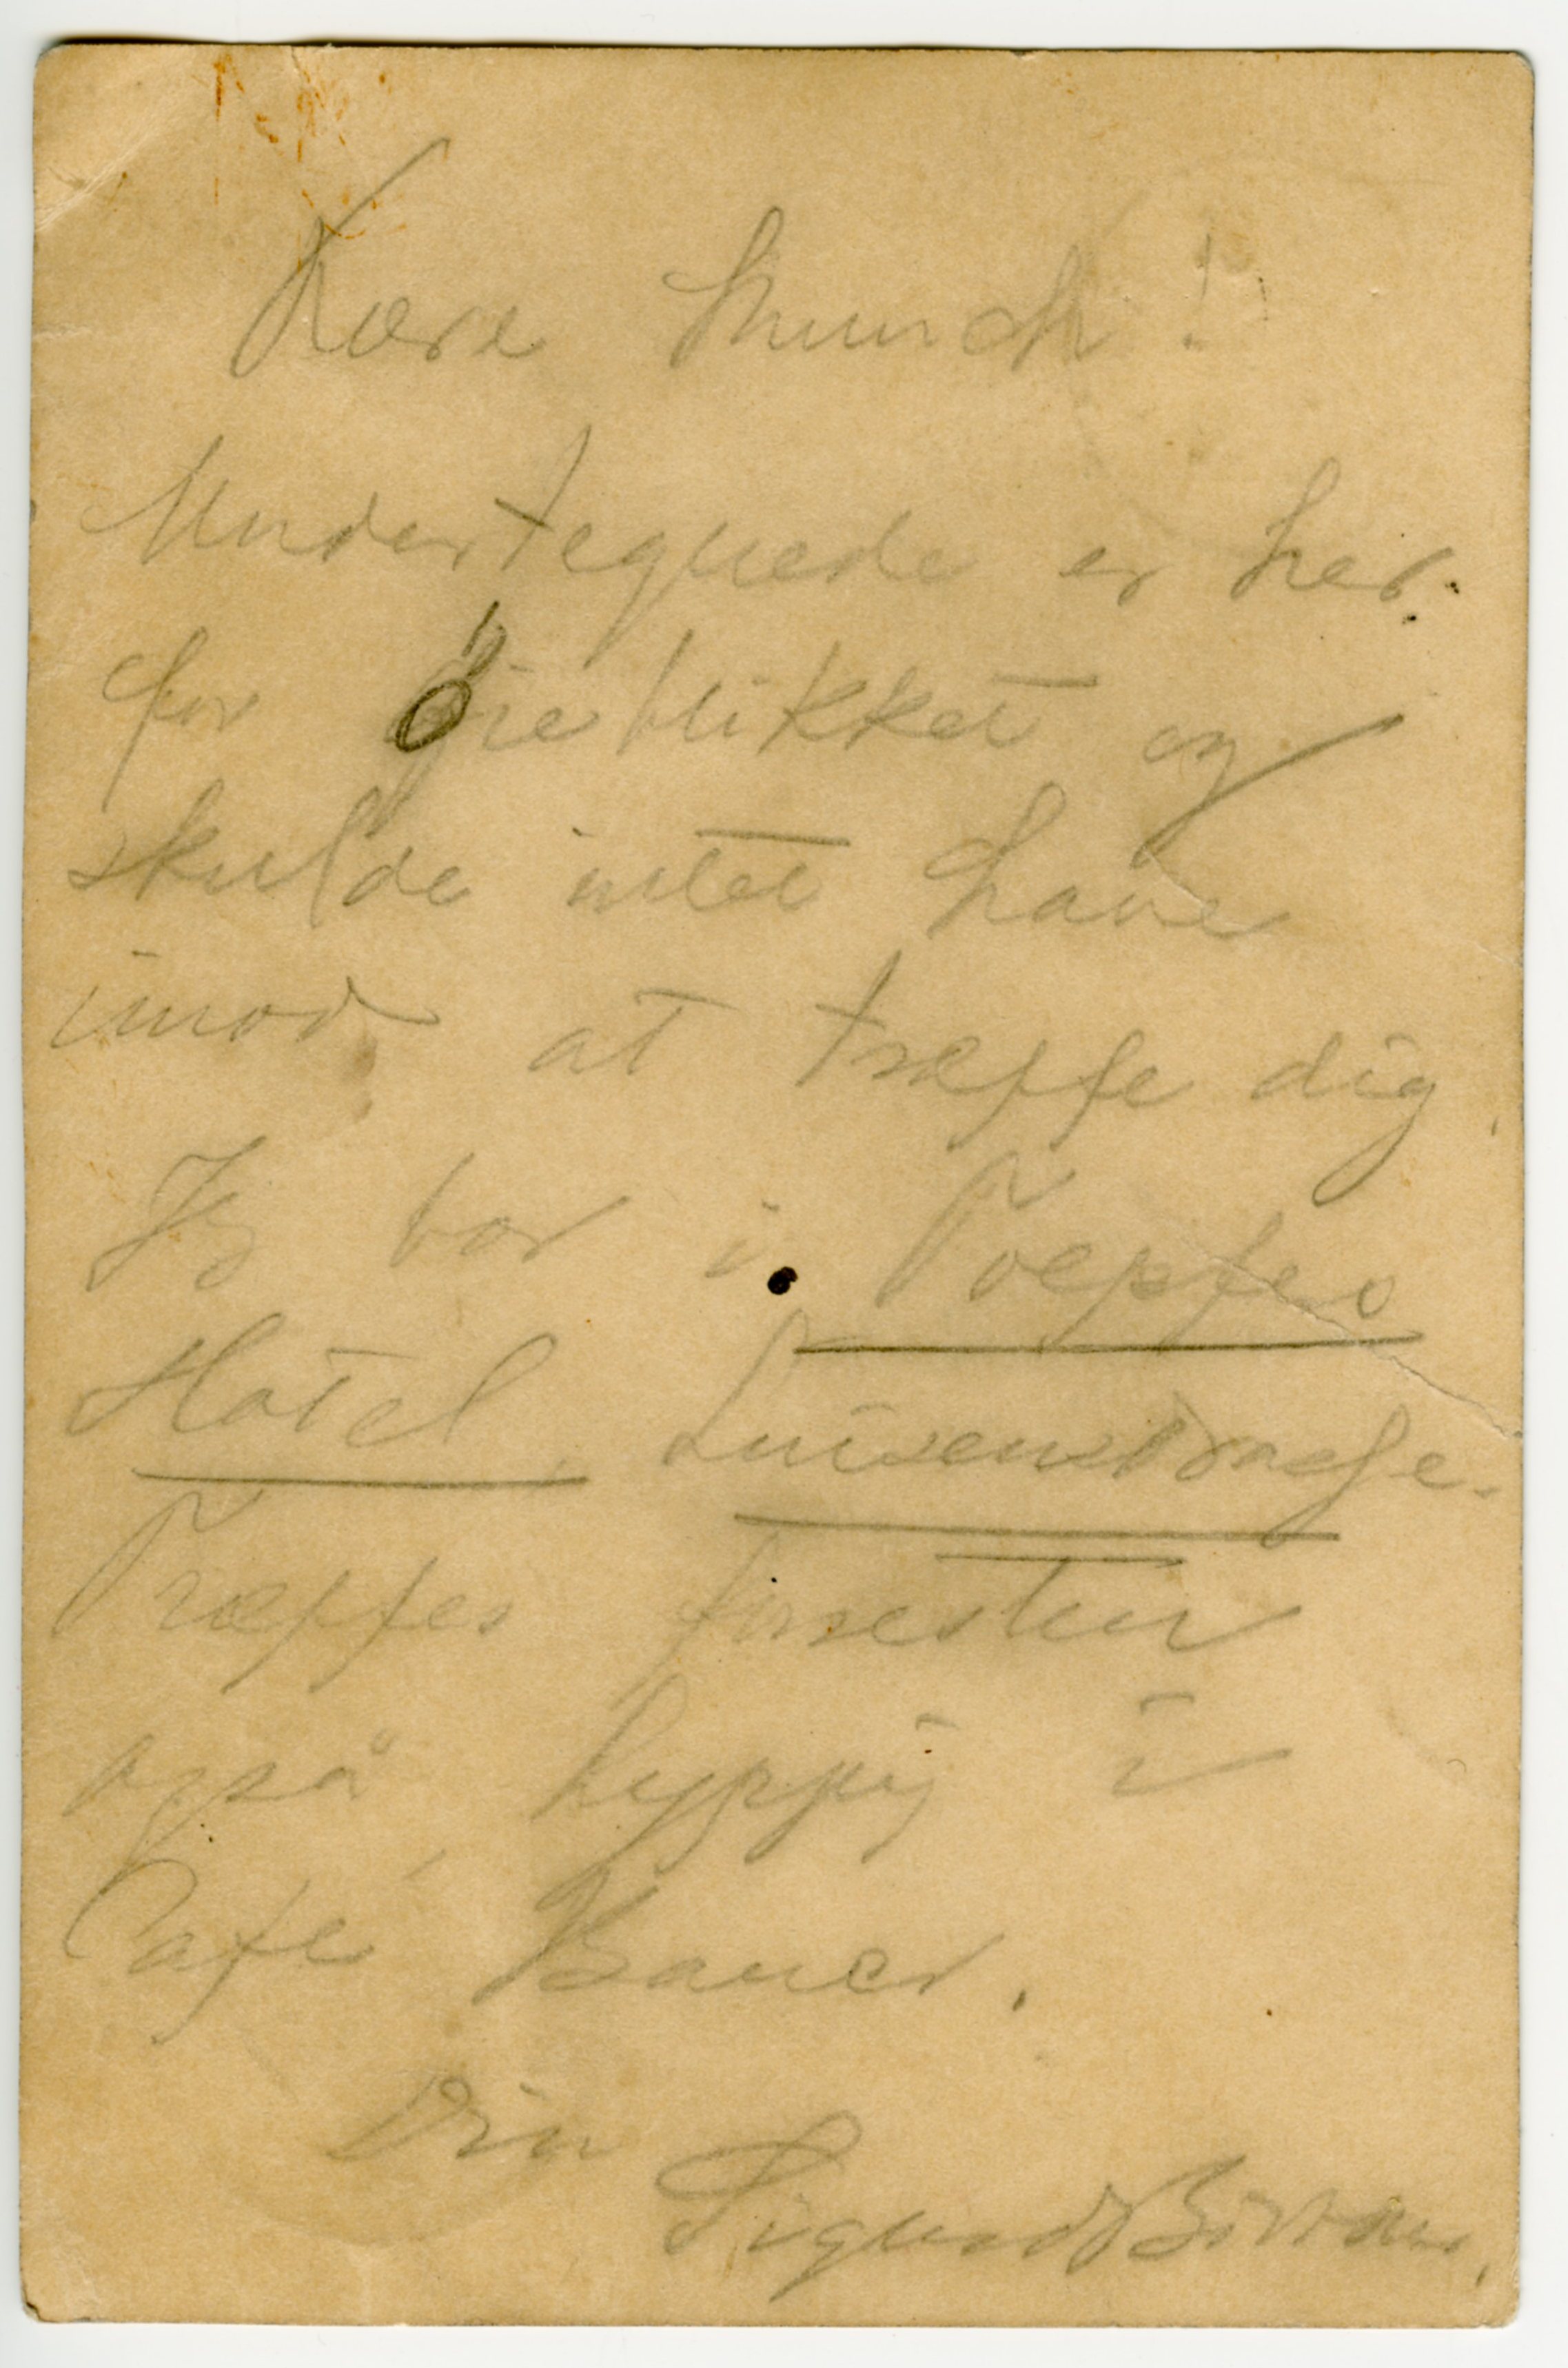 Kære Munch!
Undertegnede er her
for øieblikket og
skulde intet have
imod at træffe dig.
Jeg bor i Toepfers
Hotel, Luisenstrasse.
Træffes forresten
også hyppig i
Café Bauer.
Din
Sigurd Bödtker.